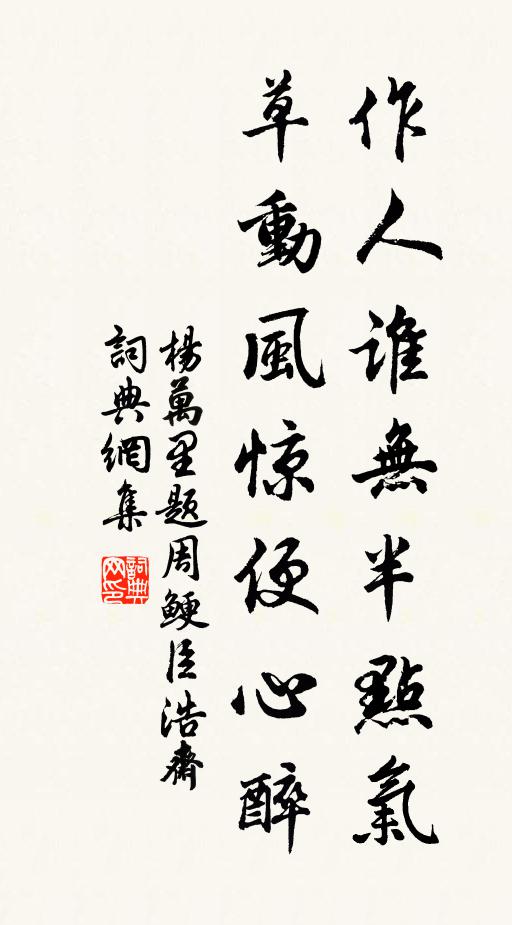 作人誰無半點氣
草動風惊便心醉
楊萬里題周鯁臣浩齋
詞典網集
詞典网印